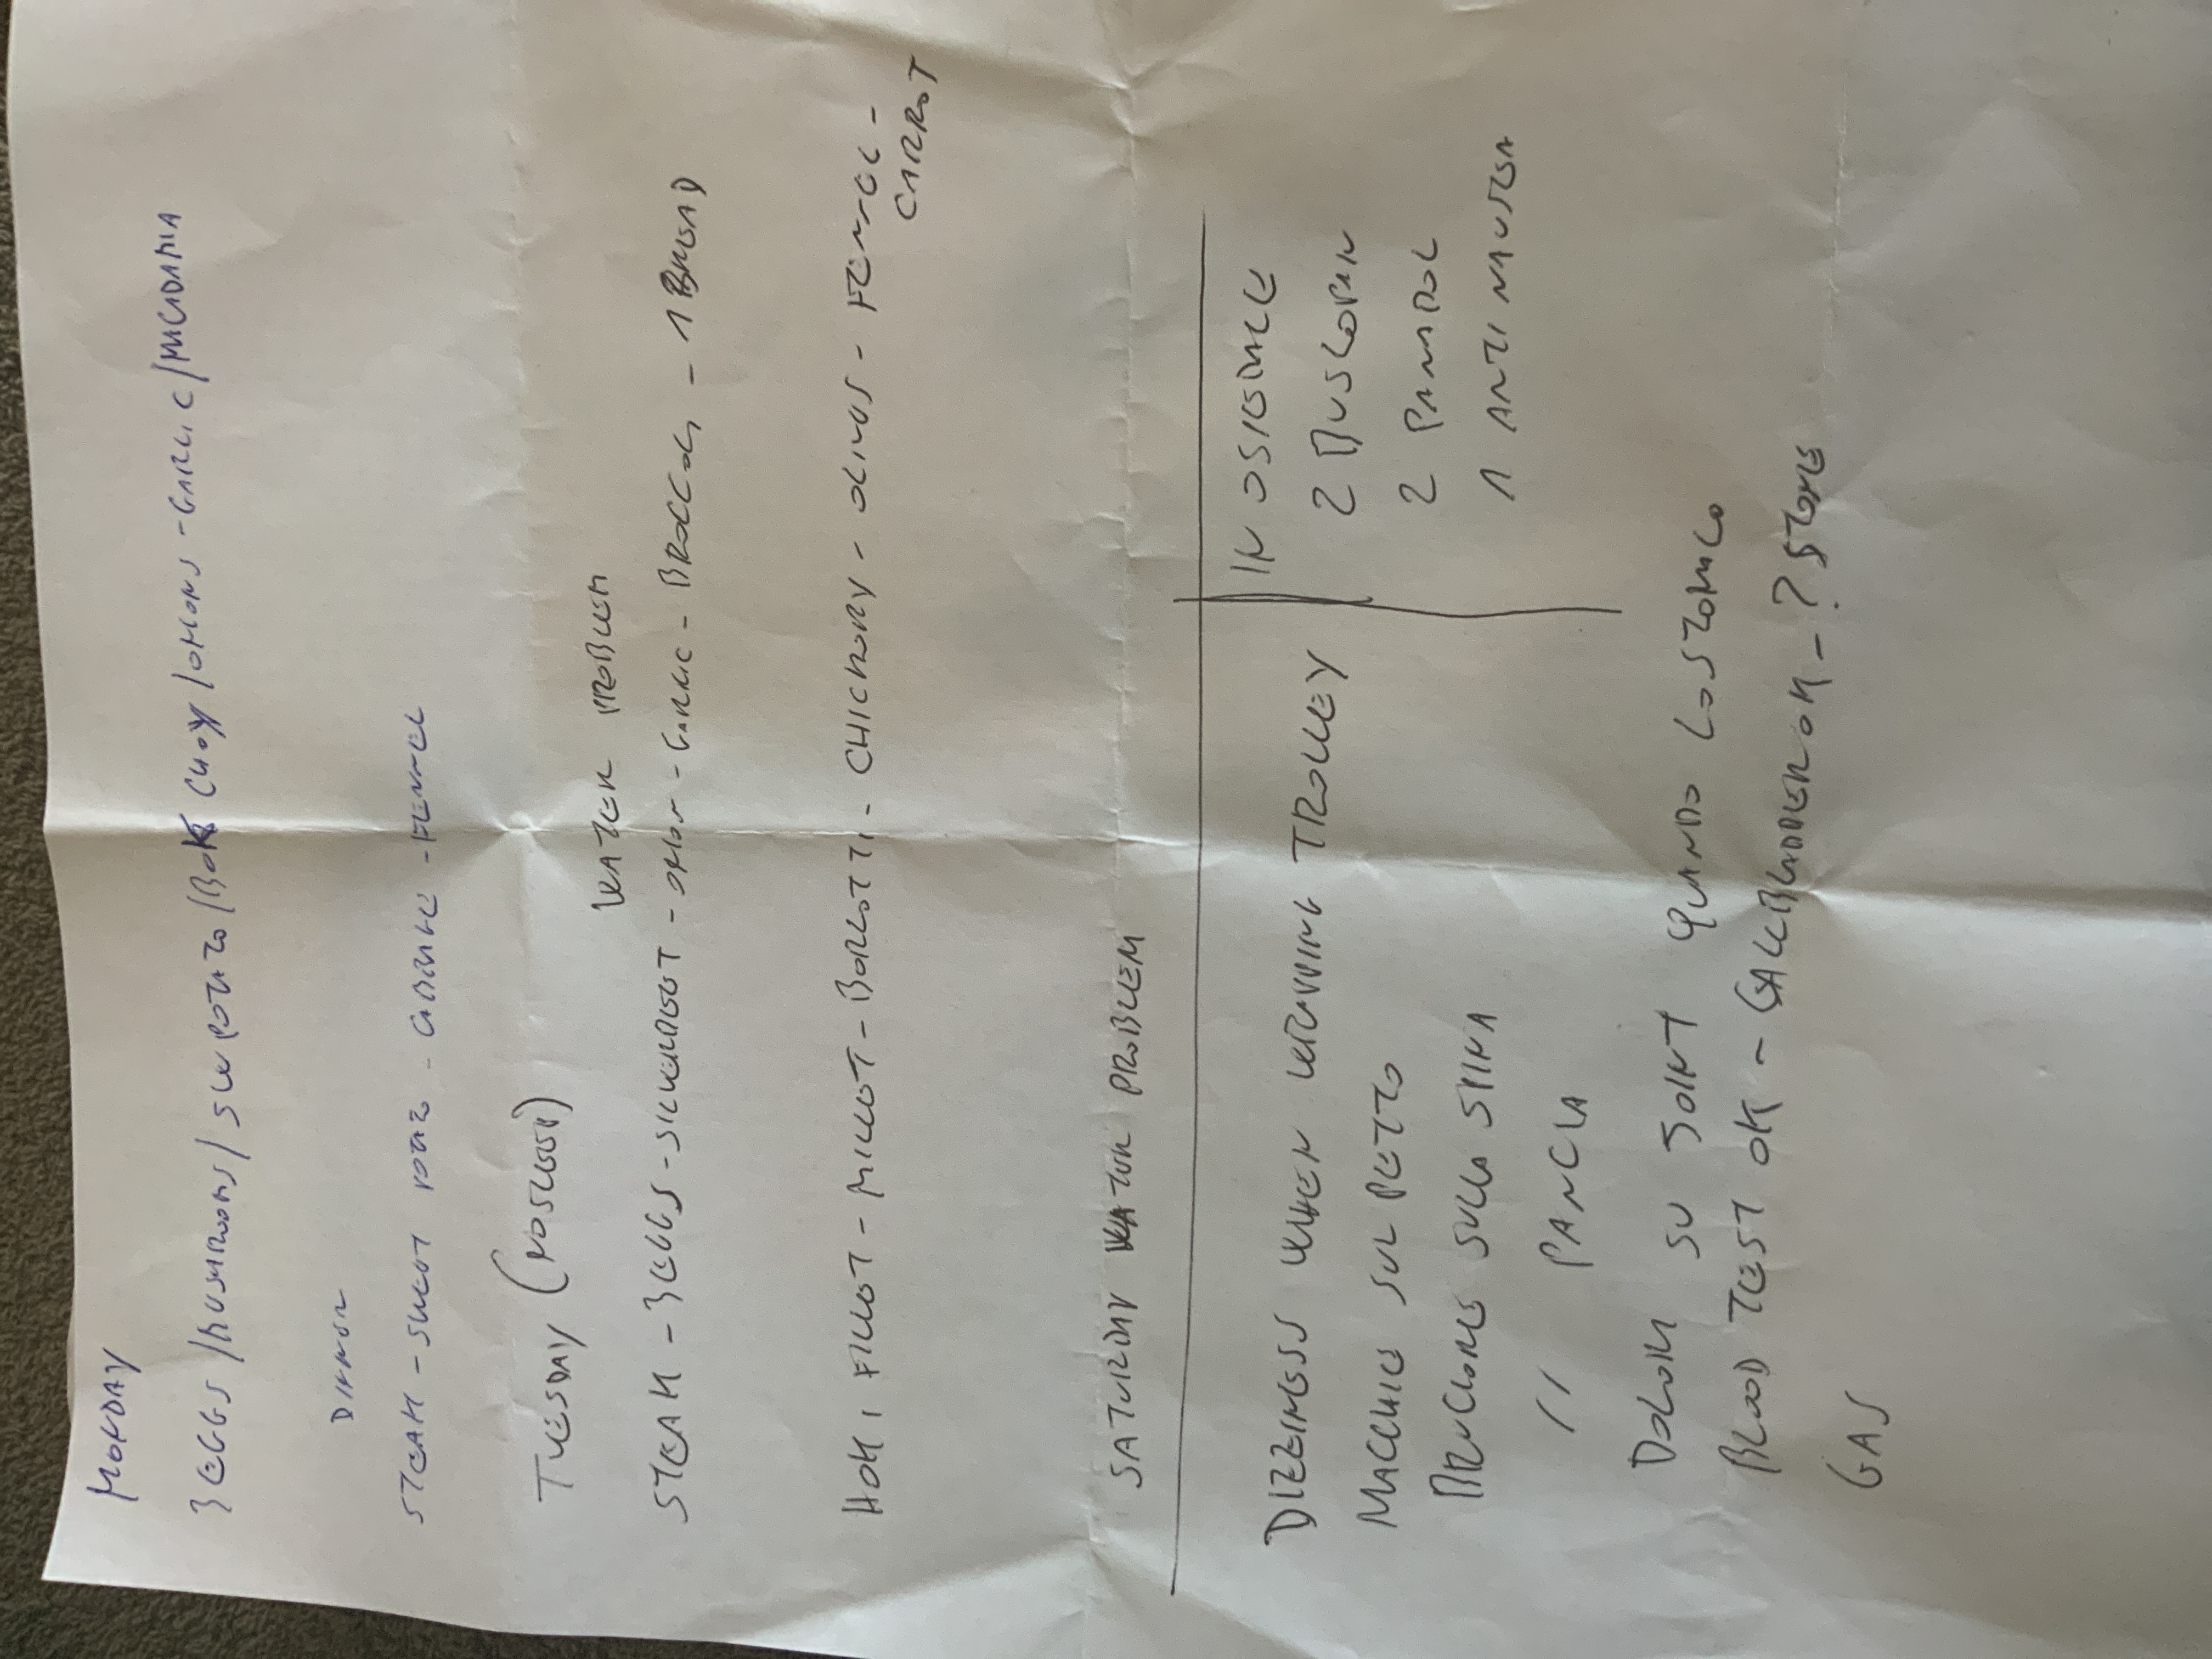 MONDAY
3 EGGS / MUSHROOMS / SW POTATO / BOK CHOY / ONIONS - GARLIC / MACADAMIA
DINNER
STEAK - SWEET POTATO - - FENNEL
TUESDAY ( )
WATER PROBLEM
STEAK - 3 EGGS - SILVERBEET - ONION - GARLIC - BROCCOLI - 1 BREAD
HOKI FILLET - MILLET - BORLOTTI - CHICKORY - OLIVES - FENNEL -
CARROT
SATURDAY WATER PROBLEM
DIZZINESS WHEN LEAVING TROLLEY
MACCHIE SUL PETTO
BRUCIORE SULLA SPINA
// PANCIA
DOLORI SU JOINT QUANDO LO STOMACO
BLOOD TEST OK - GALLBLADDER OK - ? STONE
GAS
IN OSPEDALE
2 BUSCOPAN
2 PANADOL
1 ANTI NAUSEA